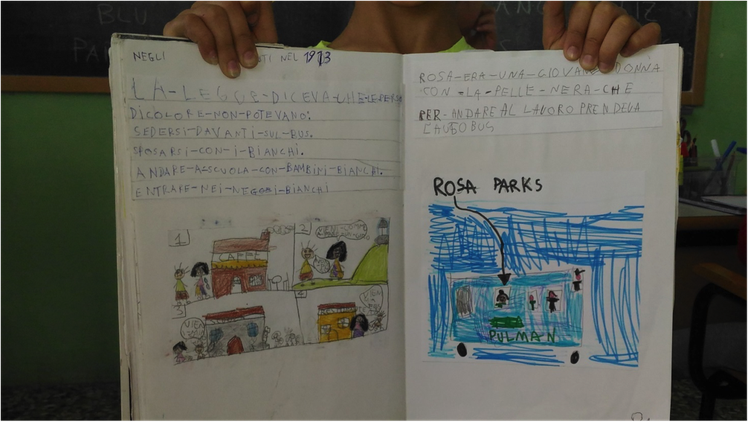 NEGLI NEL 1913
LA-LEGGE-DICEVA-CHE-LE
DICOLORE-NON-POTEVANO:
SEDERSI-DAVANTI-SUL-BUS.
SPOSARSI-CON-I-BIANCHI.
ANDARE-A-SCUOLA-CON-BAMBINI-BIANCHI.
ENTRARE-NEI-NEGOZI-BIANCHI
1
2
3
4
ROSA-ERA-UNA-GIOVANE-DONNA
CON-LA-PELLE-NERA-CHE
PER-ANDARE AL LAVORO PRENDEVA
L'AUTOBUS
ROSA PARKS
PULMAN
BLU